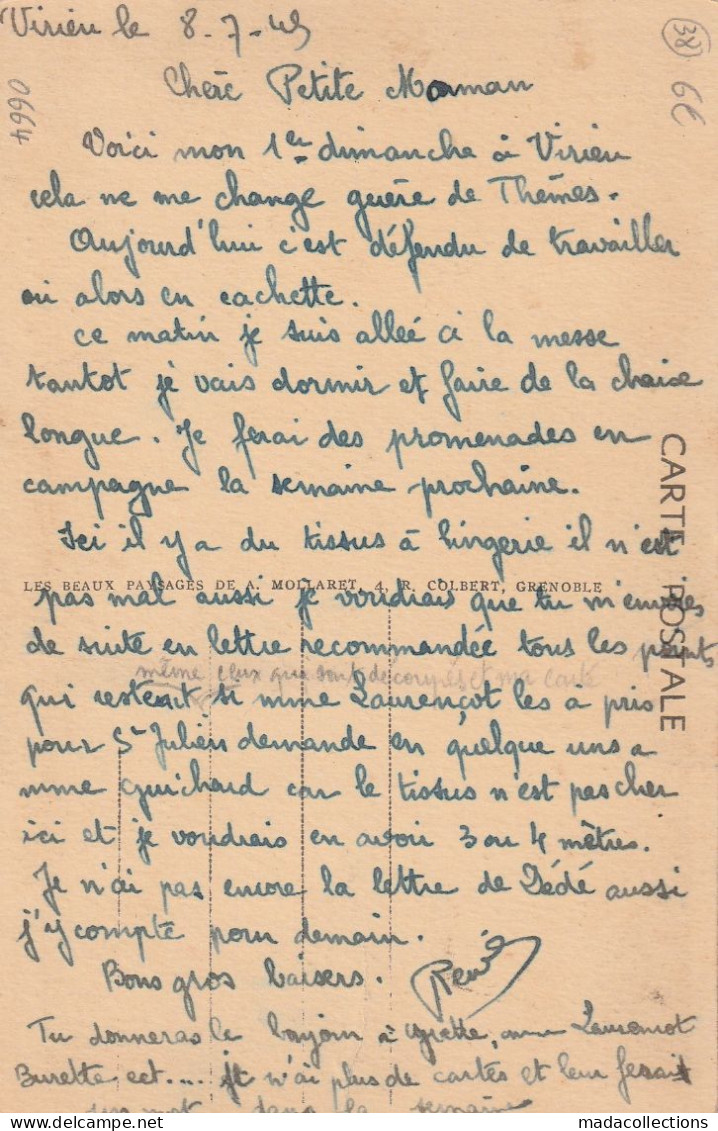 Virieu le 8-7-45
38
6€
0994
Chère Petite Maman
Voici mon 1er dimanche à Virieu
cela ne me change guère de Thèmes.
Aujourd'hui c'est défendu de travailler
ou alors en cachette.
ce matin je suis allée à la messe
tantot je vais dormir et faire de la chaise
longue. Je ferai des promenades en
campagne la semaine prochaine.
Ici il y a du tissus à lingerie il n'est
LES BEAUX PAYSAGES DE A. MOLLARET, 4, R. COLBERT, GRENOBLE
CARTE POSTALE
pas mal aussi je voudrais que tu m'envoies
de suite en lettre recommandée tous les points
même ceux qui sont découpés et ma carte
qui restent si mme Laurençot les a pris
pour St Julien demande en quelque uns a
mme Guichard car le tissus n'est pas cher
ici et je voudrais en avoir 3 ou 4 mètres.
Je n'ai pas encore la lettre de Dédé aussi
j'y compte pour demain.
Bons gros baisers. Renée
Tu donneras le bonjour à mme Laurençot
Burette, ect.... je n'ai plus de cartes et leur ferait
un mot dans la semaine
madacollections